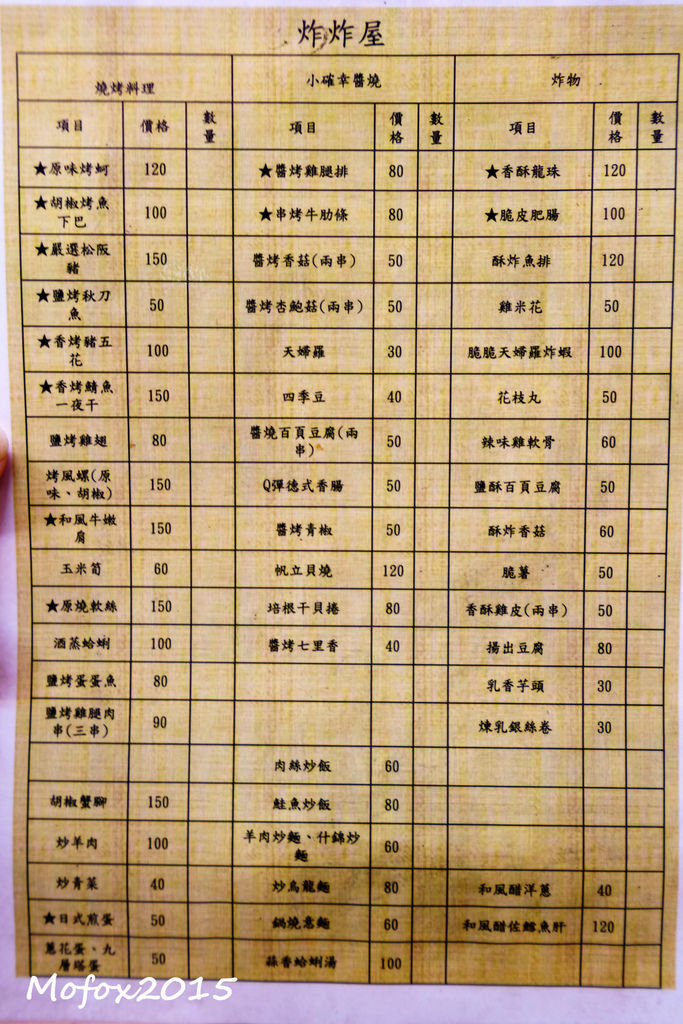 炸炸屋
燒烤料理 小確幸醬燒 炸物
項目 價格 數量 項目 價格 數量 項目 價格 數量
★原味烤蚵 120 ★醬烤雞腿排 80 ★香酥龍珠 120
★胡椒烤魚下巴 100 ★串烤牛肋條 80 ★脆皮肥腸 100
★嚴選松阪豬 150 醬烤香菇(兩串) 50 酥炸魚排 120
★鹽烤秋刀魚 50 醬烤杏鮑菇(兩串) 50 雞米花 50
★香烤豬五花 100 天婦羅 30 脆脆天婦羅炸蝦 100
★香烤鯖魚一夜干 150 四季豆 40 花枝丸 50
鹽烤雞翅 80 醬燒百頁豆腐(兩串) 50 辣味雞軟骨 60
烤風螺(原味、胡椒) 150 Q彈德式香腸 50 鹽酥百頁豆腐 50
★和風牛嫩肩 150 醬烤青椒 50 酥炸香菇 60
玉米筍 60 帆立貝燒 120 脆薯 50
★原燒軟絲 150 培根干貝捲 80 香酥雞皮(兩串) 50
酒蒸蛤蜊 100 醬烤七里香 40 揚出豆腐 80
鹽烤蛋蛋魚 80 乳香芋頭 30
鹽烤雞腿肉串(三串) 90 煉乳銀絲卷 30
肉絲炒飯 60
胡椒蟹腳 150 鮭魚炒飯 80
炒羊肉 100 羊肉炒麵、什錦炒麵 60
炒青菜 40 炒烏龍麵 80 和風醋洋蔥 40
★日式煎蛋 50 鍋燒意麵 60 和風醋佐鱈魚肝 120
蔥花蛋、九層塔蛋 50 蒜香蛤蜊湯 100
Mofox2015